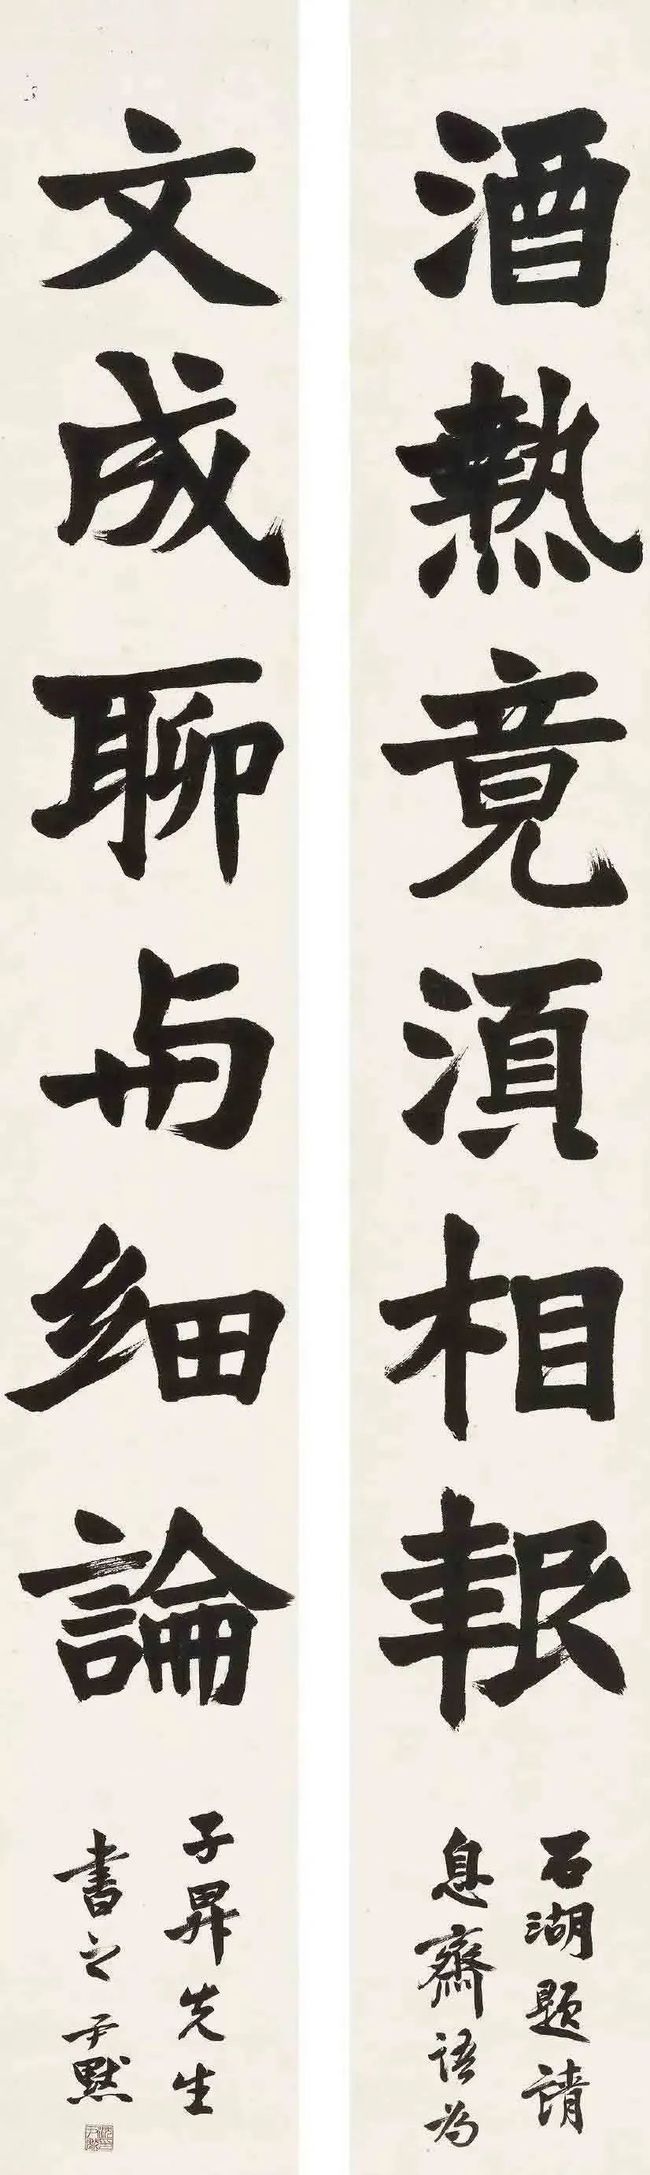 酒熱竟須相報
石湖題請
息齋語為
文成聊与細論
子昇先生
書之尹默